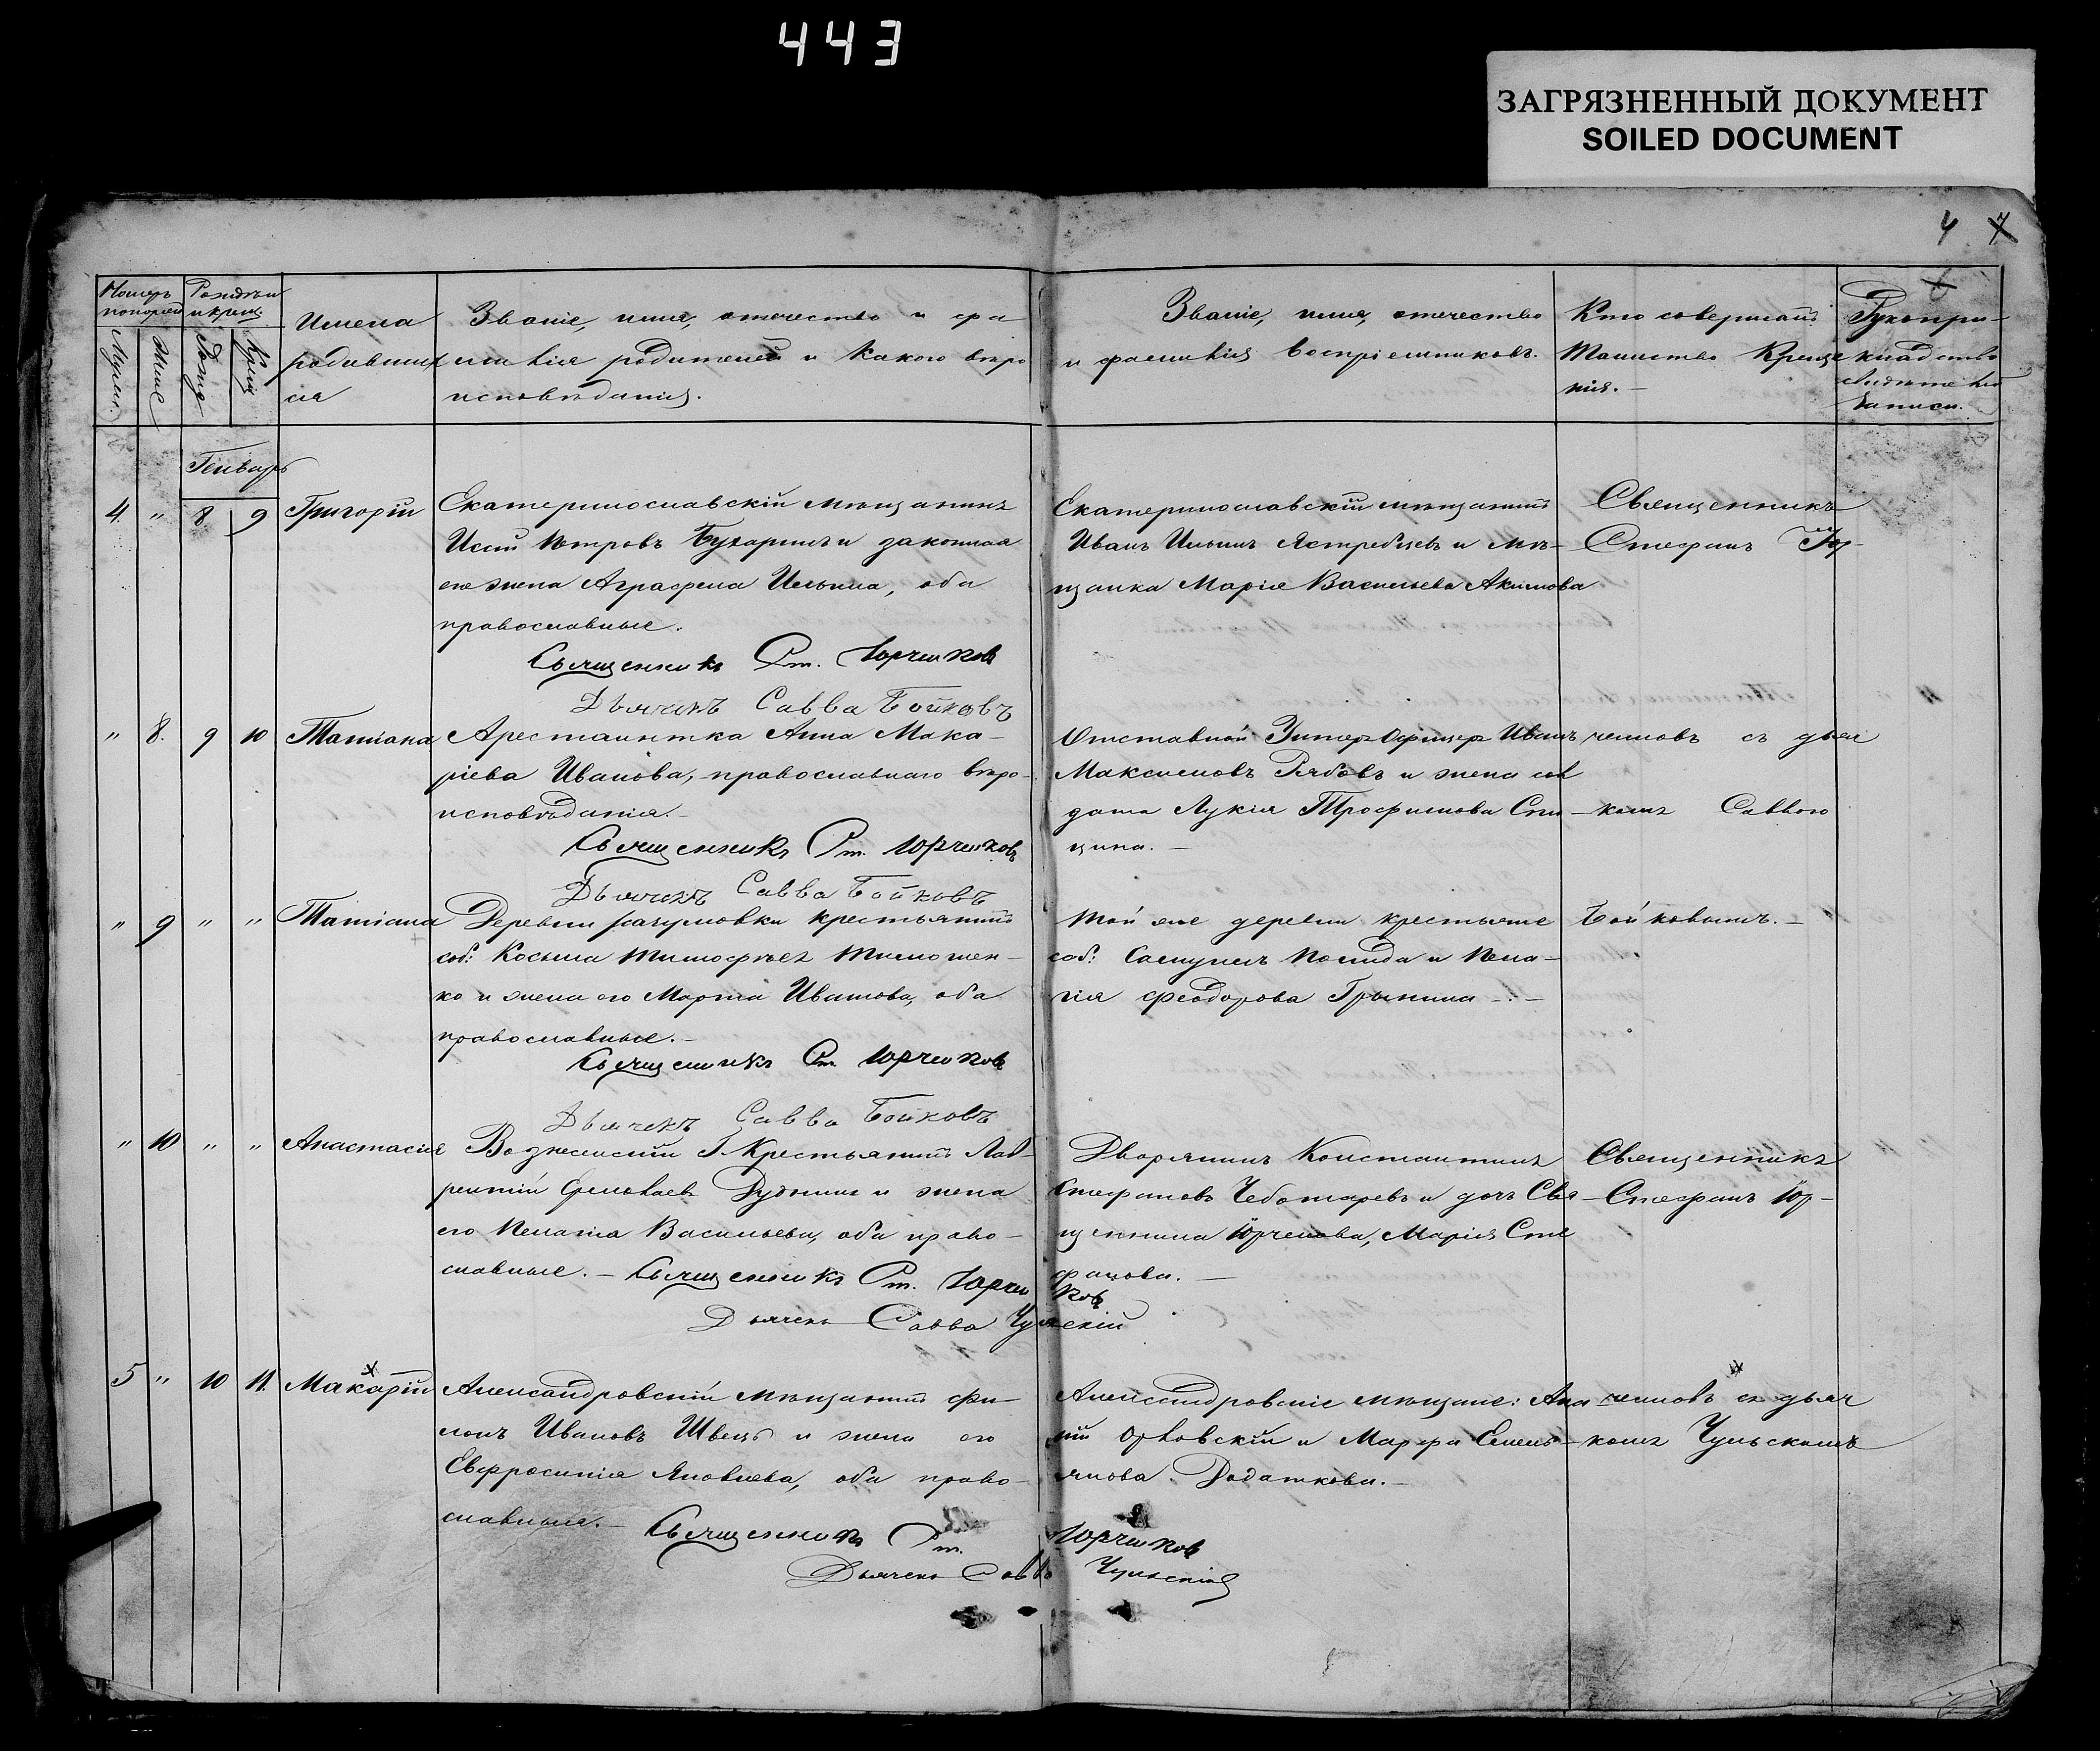 443
ЗАГРЯЗНЕННЫЙ ДОКУМЕНТ
SOILED DOCUMENT
4 7
Номеръ
Рожден
и крещ.
Муж.
Жене
Рожд
Крещ
Имена
родивших
ся
Званіе, имя, отчество и фа
милія родителей и какого веро
исповѣданія.
Званіе, имя, отчество
и фамилія воспріемниковъ.
Кто совершалъ
Таинство Креще
нія.
Рукопри-
кладство
свидѣтелей
записи.
Генварь
4. " 8 9 Григорій
Екатеринославскій мѣщанинъ
Петровъ Бухаринъ и законная
его жена Аграфена Ильина, оба
православные.
Священникъ Ст. Юрченков
Дьячекъ Савва Бойковъ
Екатеринославскій мѣщанинъ
Иванъ Ильинъ Ястребцевъ и мѣ-
щанка Марія Васильева Акимова
Священникъ
Стефанъ Юр-
" 8. 9 10 Татіана
Арестантка Анна Мака-
ріева Иванова, православнаго вѣро-
исповѣданія.
Священникъ Ст. Юрченковъ
Дьячекъ Савва Бойковъ
Отставной Унтеръ Офицеръ Иванъ
Максимовъ Рябовъ и жена сол
дата Лукія Трофимова Спи-
цина.
ченковъ съ дьяч
комъ Саввою
" 9 " " Татіана
Деревни крестьянинъ
соб: Косьма Тимофѣевъ Тимошен-
ко и жена его Марта Иванова, оба
православные.
Священникъ Ст. Юрченков
Дьячекъ Савва Бойковъ
Той же деревни крестьяне
соб: Самуилъ и Пела-
гія Феодорова
Бойковымъ.
" 10 " " Анастасія
Крестьянинъ Лав-
рентій Дуднинъ и жена
его Пелагія Васильева, оба право-
славные. Священникъ Ст. Юрчен
ков
Дьячекъ Савва Чульскій
Дворянинъ Константинъ
Стефановъ Чеботаревъ и дочь Свя-
щенника Юрченкова, Марія Сте
фанова.
Священникъ
Стефанъ Юр-
5 " 10 11. Макарій
Александровскій мѣщанинъ Фи-
монъ Ивановъ Швецъ и жена его
Евфросинія Яковлева, оба право-
славныя. Священникъ Ст. Юрченков
Дьячекъ Савва Чульскій
Александровскіе мѣщане: Ана
ній Орловскій и Марфа Емель-
янова Додаткова.
ченковъ съ дьяч
комъ Чульскимъ